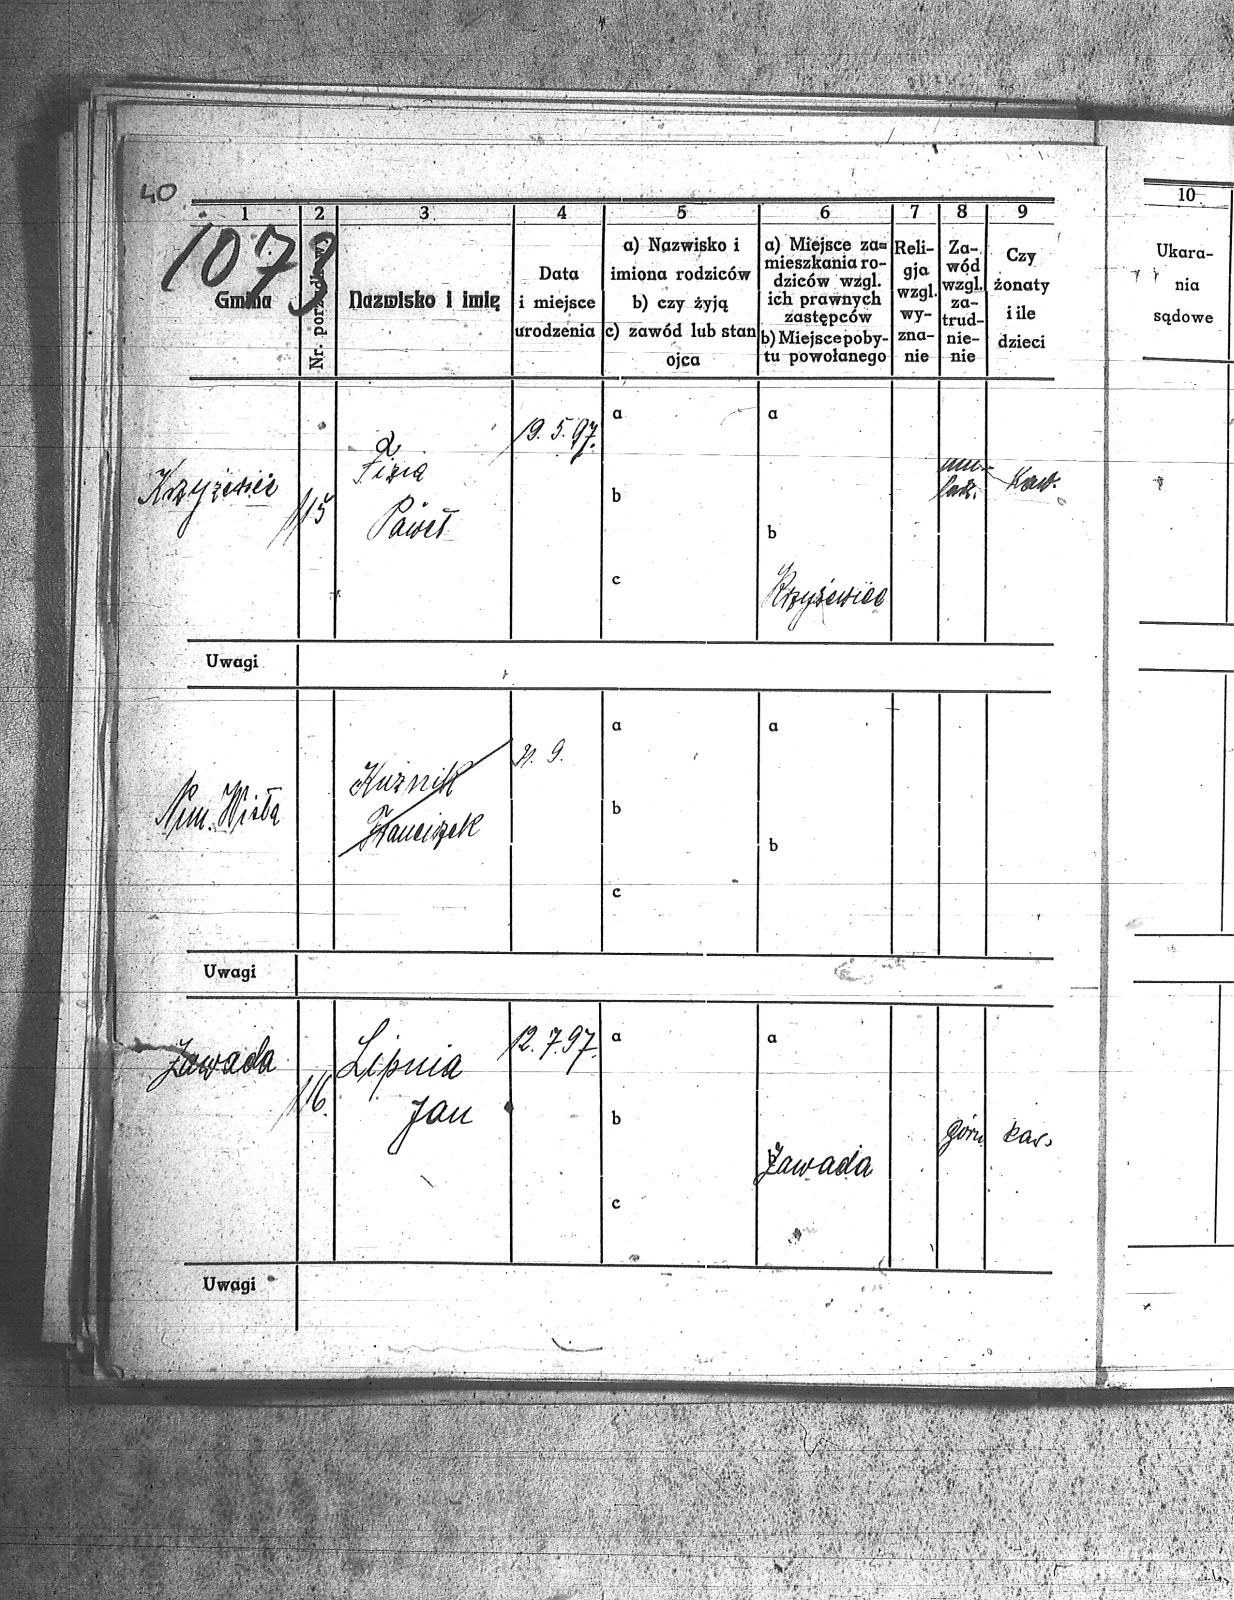 40
1 2 3 4 5 6 7 8 9 10
1073
Gmina
Nr. porządkow.
Nazwisko i imię
Data
i miejsce
urodzenia
a) Nazwisko i
imiona rodziców
b) czy żyją
c) zawód lub stan
ojca
a) Miejsce za=
mieszkania ro-
dziców wzgl.
ich prawnych
zastępców
b) Miejsce poby-
tu powołanego
Reli-
gja
wzgl.
wy-
zna-
nie
Za-
wód
wzgl.
za-
trud-
nie-
nie
Czy
żonaty
i ile
dzieci
Ukara-
nia
sądowe
Krzyżowice
115
Fizia
Paweł
19. 5. 97.
a
b
c
a
b
Krzyżowice
Kaw.
Uwagi
Nm. Wisła
Kuźnik
Franciszek
a
b
c
a
b
Uwagi
Zawada
116.
Lipnia
Jan
12. 7. 97.
a
b
c
a
Zawada
Górn.
kaw.
Uwagi